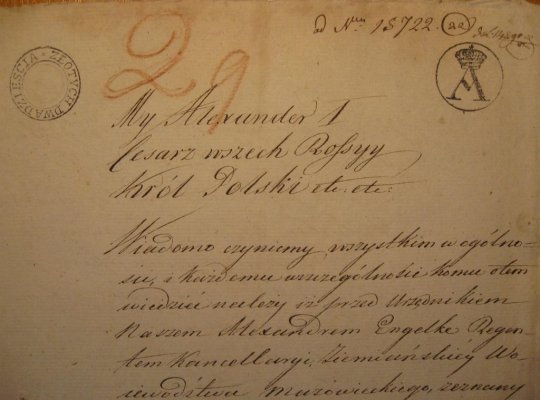 ad Nrum 18722.
22
29
ZŁOTYCH DWADZIEŚCIA
A
My Alexander I
Cesarz wszech Rossyy
Król Polski etc: etc:
Wiadomo czyniemy wszystkim w ogólno-
sci, i każdemu wszczególności komu otem
wiedzieć należy iż przed Urzędnikiem
Naszem Alexandrem Engelke Regen-
tem Kancellaryi Ziemiańskiéy Wo-
iewodztwa mazowieckiego, zeznany